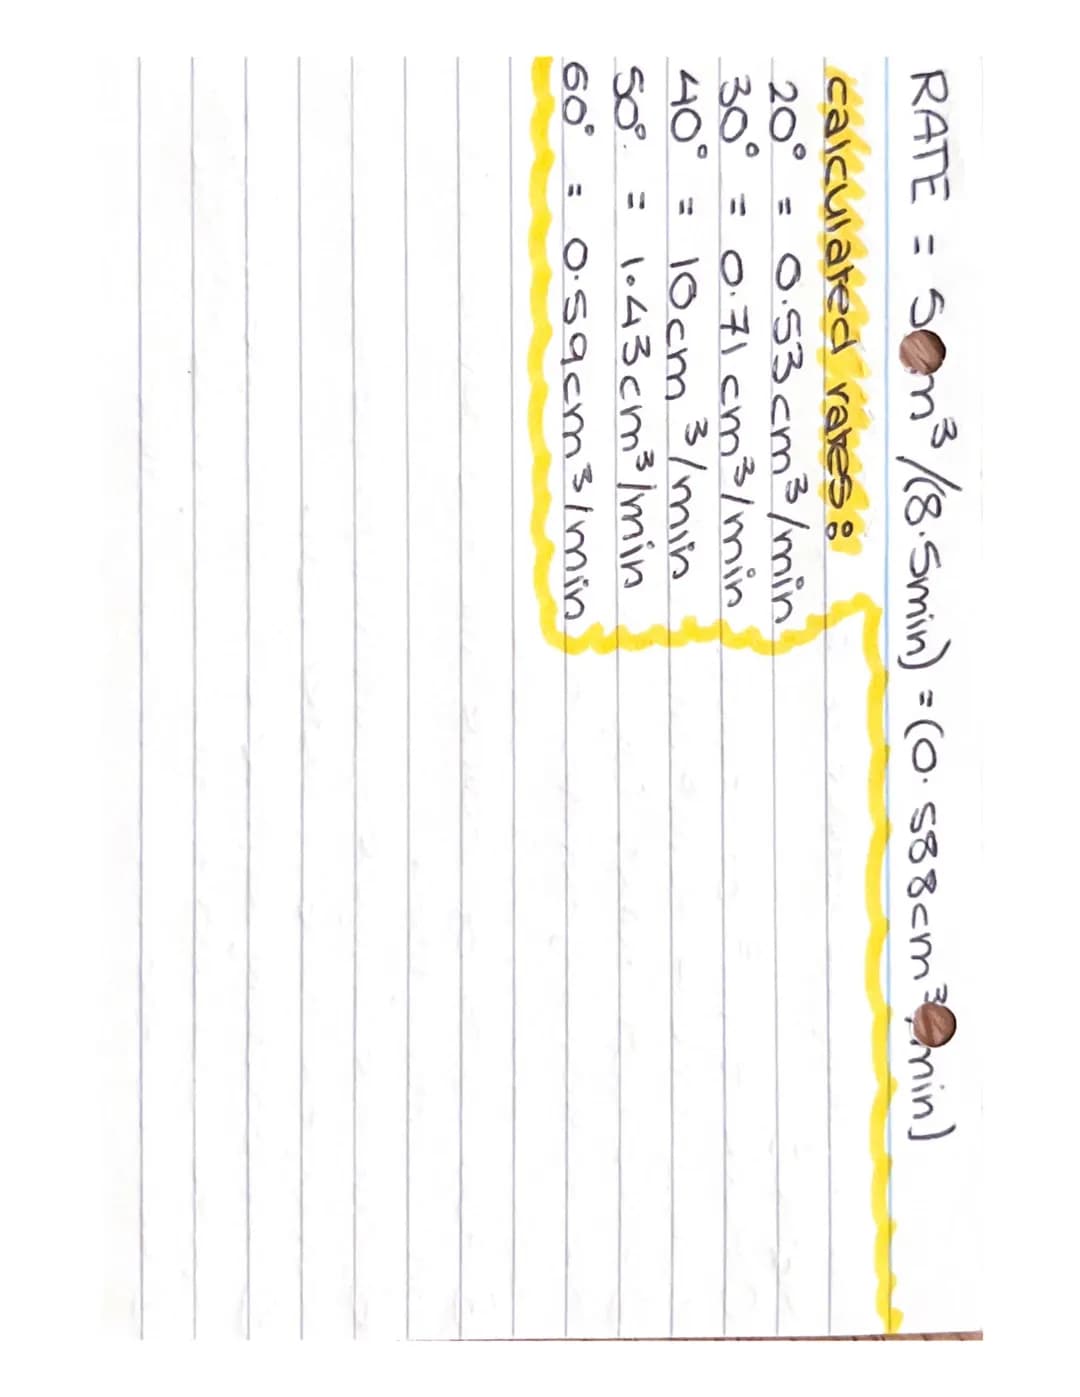 RATE = 5 m³/(8.5min) = (0.588cm³ min)
calculated rates:
20° = 0.53cm³/min
30° = 0.71cm³/min
40° = 10cm³/min
50° = 1.43cm³/min
60° = 0.59cm³/min